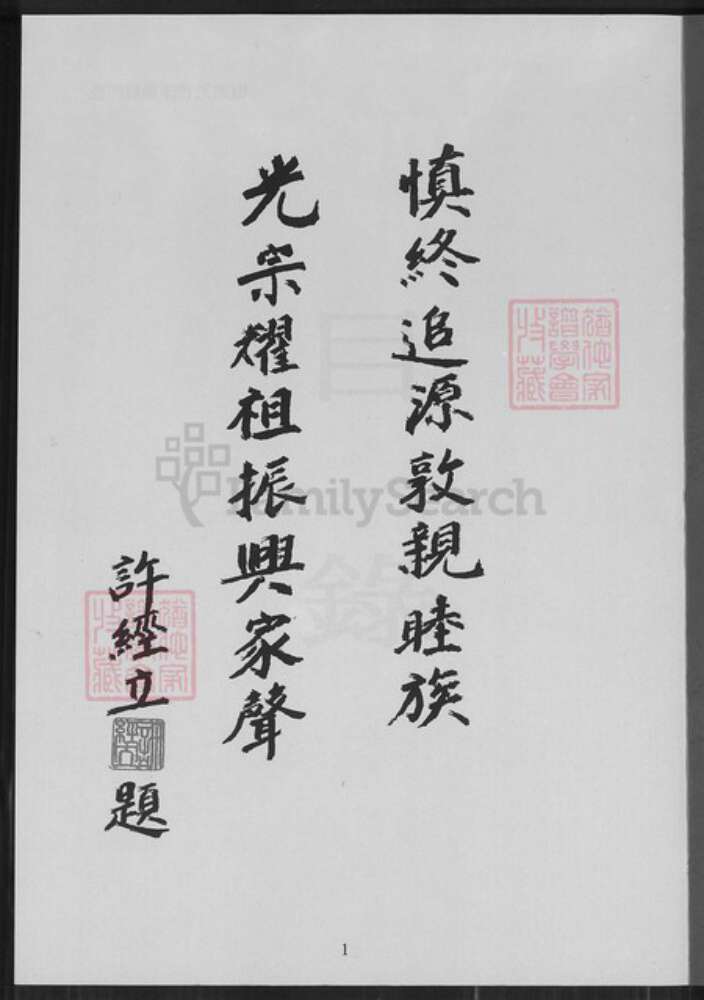 慎終追源敦親睦族
光宗耀祖振興家聲
許經立
題
FamilySearch
1